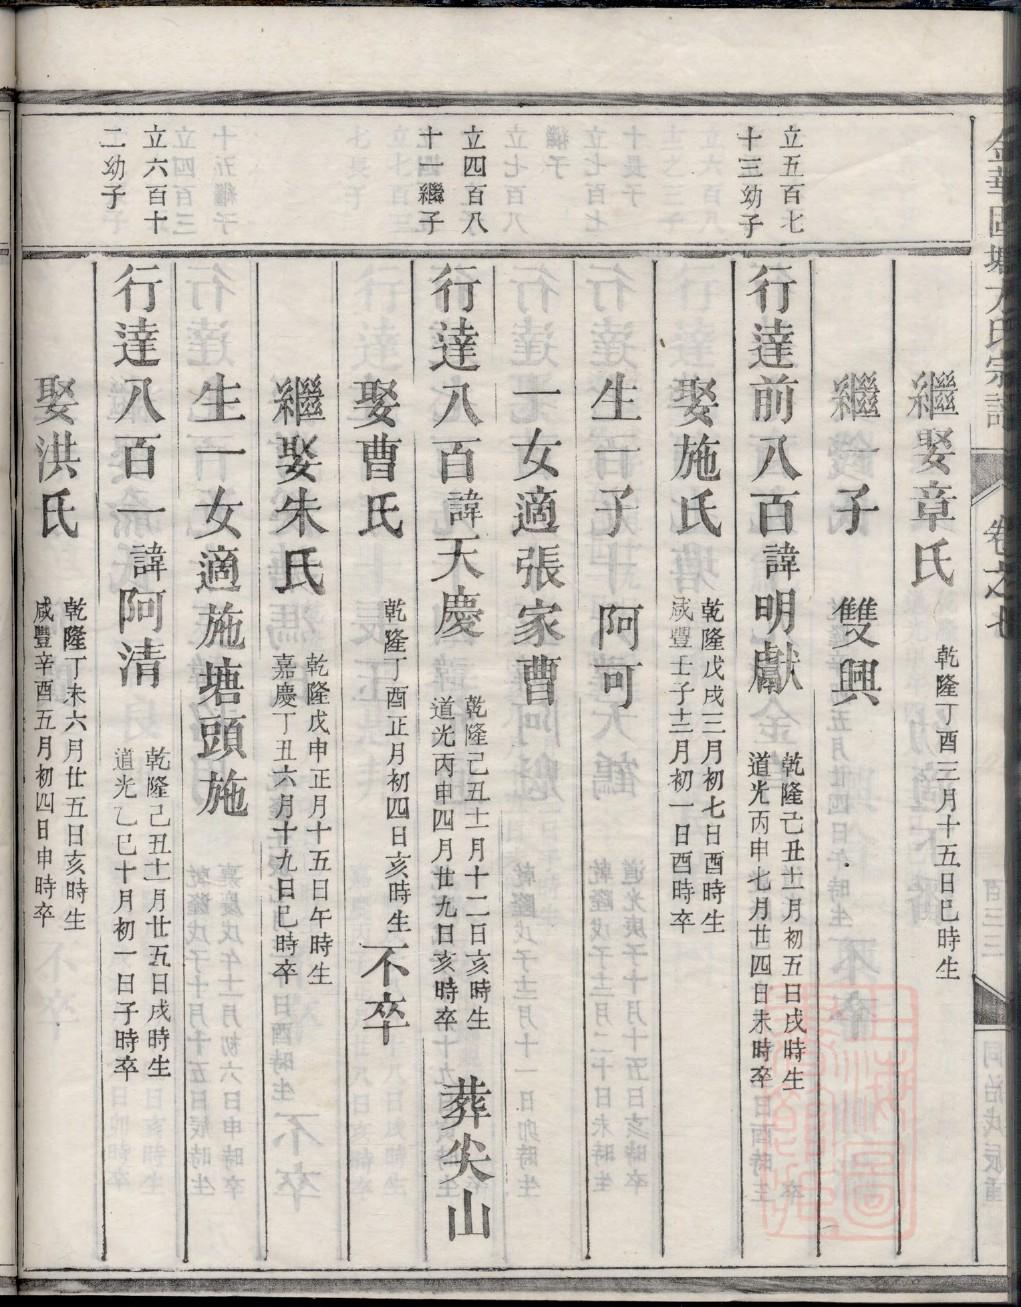 卷之七
繼娶章氏 乾隆丁酉三月十五日巳時生
繼一子 雙興
立五百七
十三幼子
行達前八百諱明獻 乾隆己丑十二月初五日戌時生
道光丙申七月廿四日未時卒
娶施氏 乾隆戊戌三月初七日酉時生
咸豐壬子十二月初一日酉時卒
生一子 阿可
一女適張家曹
立四百八
十一繼子
行達八百諱天慶 乾隆己丑十二月十二日亥時生
道光丙申四月廿九日亥時卒
葬尖山
娶曹氏 乾隆丁酉正月初四日亥時生 不卒
繼娶朱氏 乾隆戊申正月十五日午時生
嘉慶丁丑六月十九日巳時卒
生一女適施塘頭施
立六百十
二幼子
行達八百一諱阿清 乾隆己丑十二月廿五日戌時生
道光乙巳十月初一日子時卒
娶洪氏 乾隆丁未六月廿五日亥時生
咸豐辛酉五月初四日申時卒